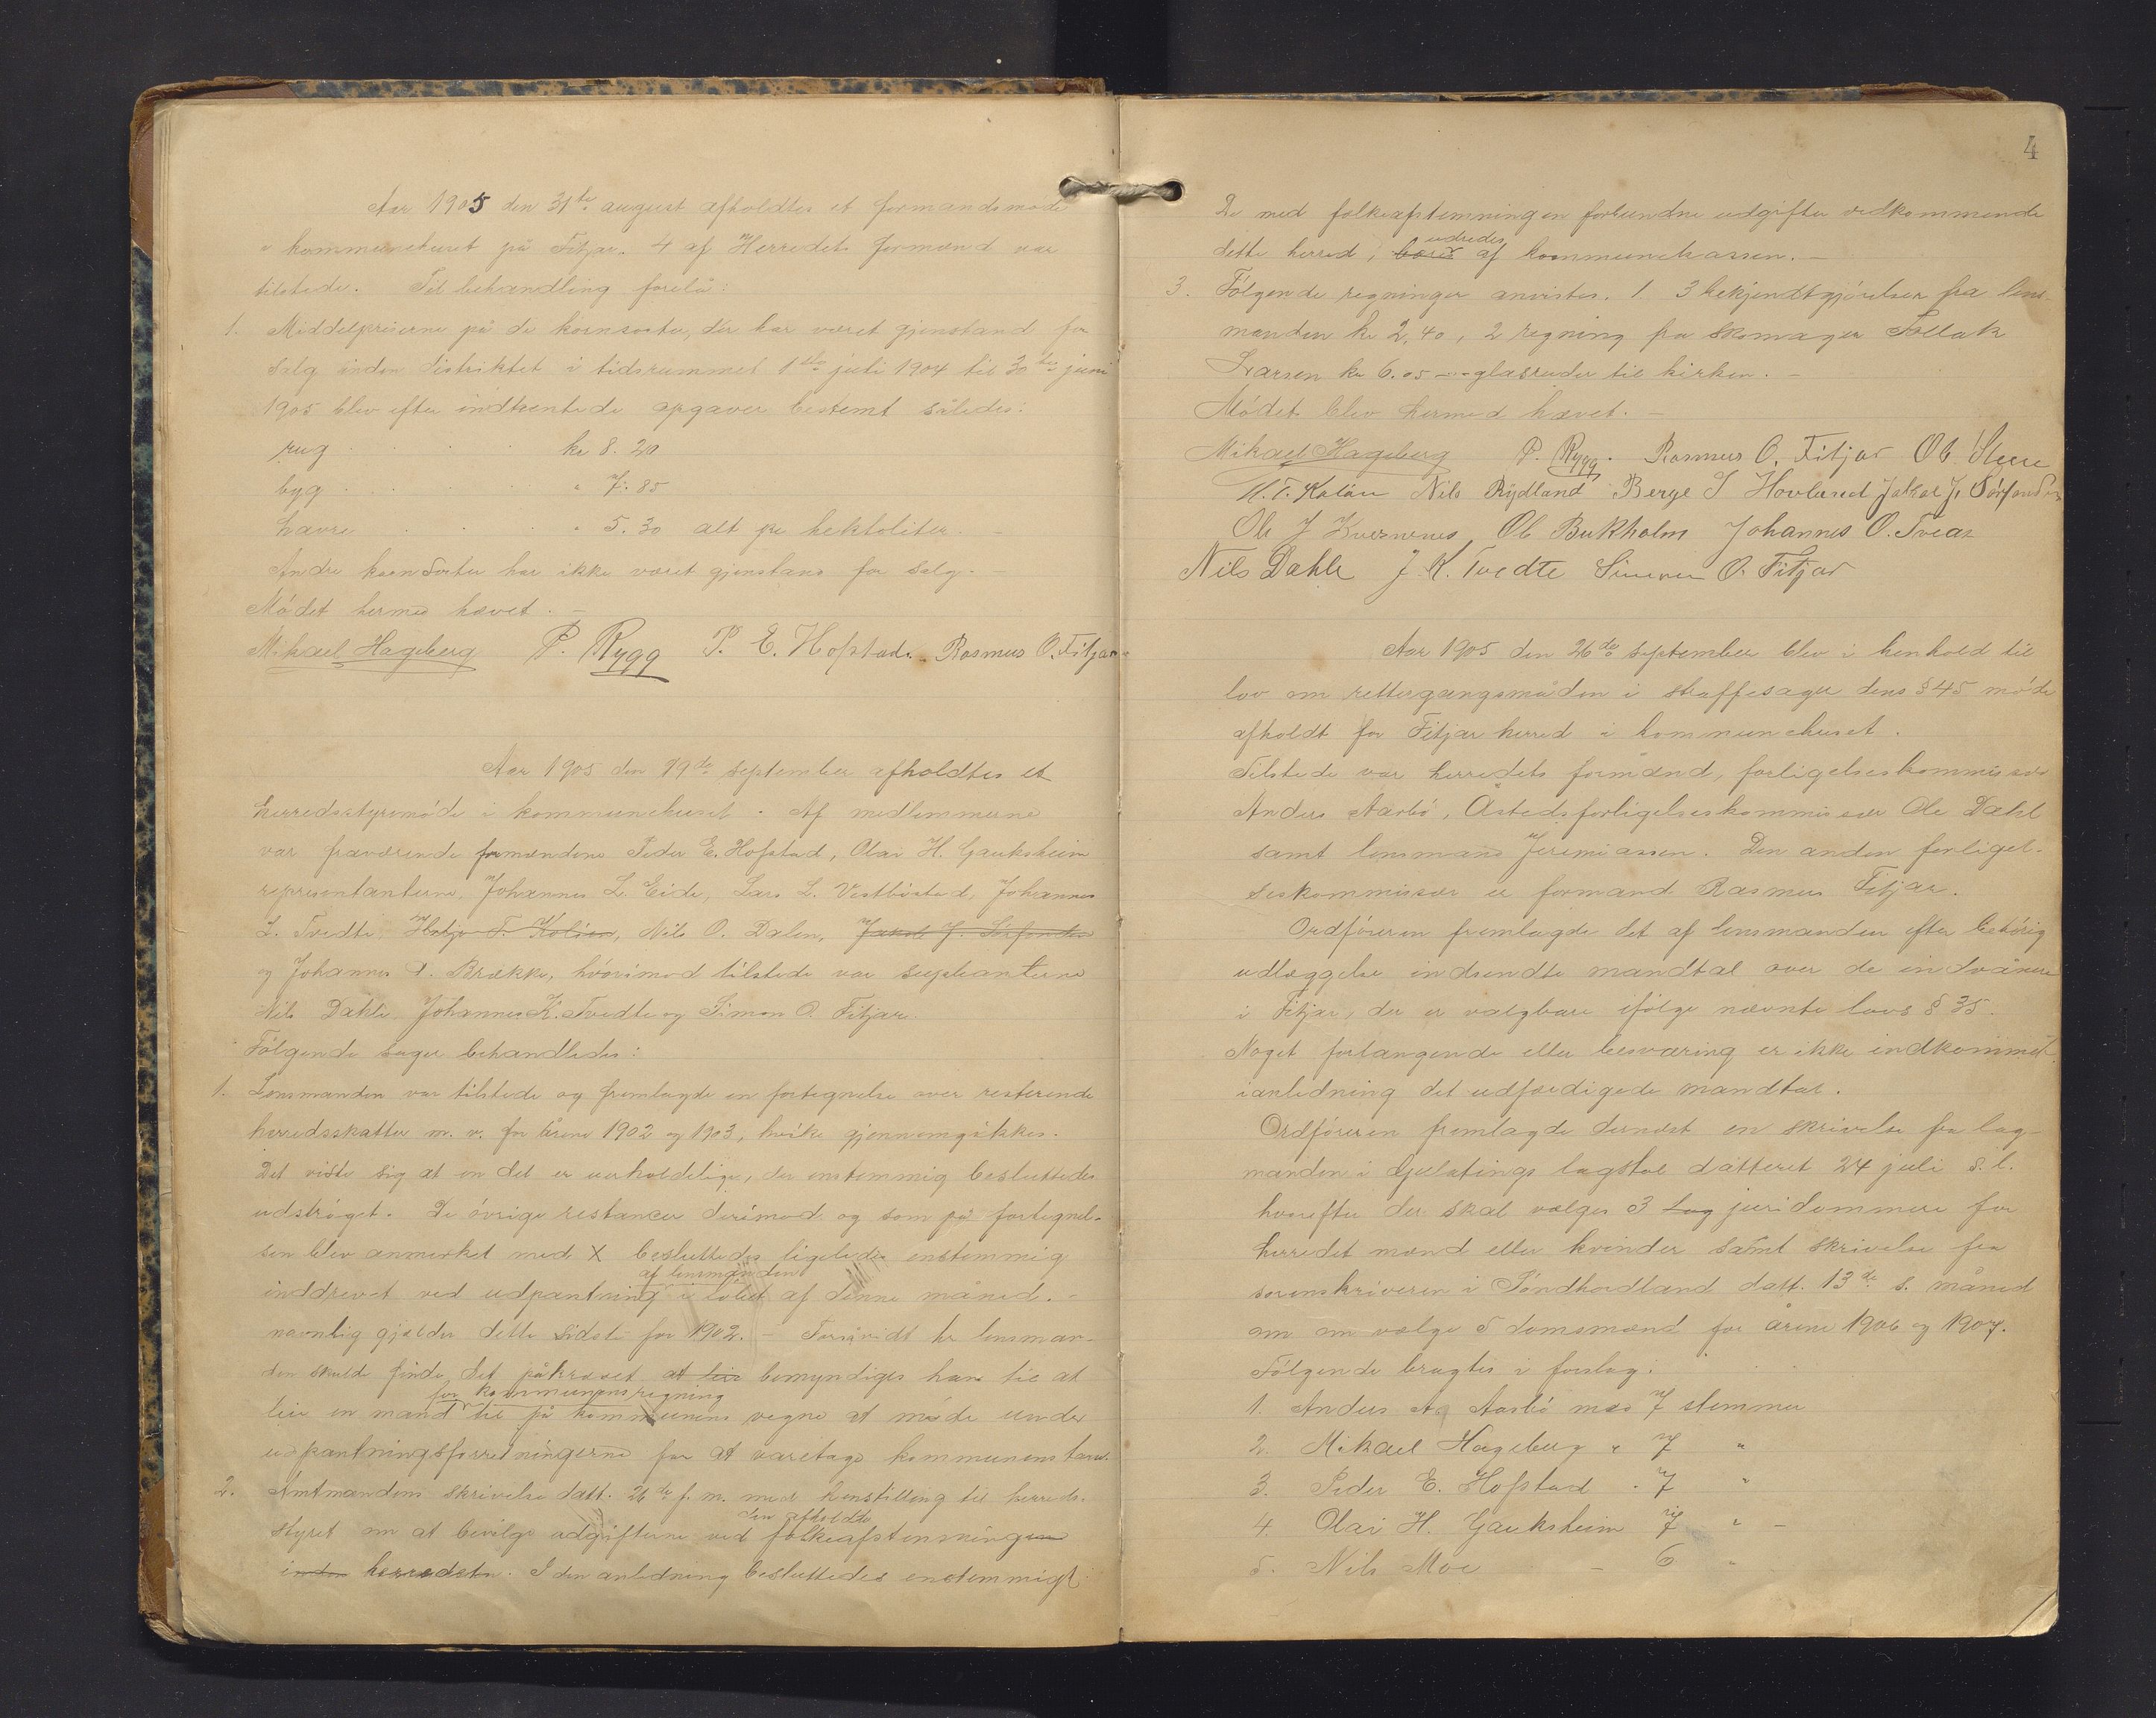 Aar 1905 den 31te august afholdtes et formandsmøde
i kommunehuset på Fitjar. 4 af Herredets formænd var
tilstede. Til behandling forelå:
1. Middelpriserne på de kornsorter, der har været gjenstand for
salg inden distriktet i tidsrummet 1ste juli 1904 til 30te juni
1905 blev efter indhentede opgaver bestemt således:
rug . . . kr 8.20
byg . . . " 7.85
havre . . . " 5.30 alt pr hektoliter. –
Andre kornsorter har ikke været gjenstand for salg. –
Mødet hermed hævet. –
Mikael Hageberg P. Rygg P. E. Hofstad. Rasmus O. Fitjar
Aar 1905 den 19de september afholdtes et
herredsstyremøde i kommunehuset. Af medlemmerne
var fraværende formændene Peder E. Hofstad, Olai H. Gauksheim
repræsentanterne Johannes L. Eide, Lars L. Vestbøstad, Johannes
L. Tvedte, Helje T. Koløen, Nils O. Dalen, Jakob J. Sørfonden
og Johannes A. Brække, hvorimod tilstede var suppleanterne
Nils Dahle, Johannes K. Tvedte og Simon O. Fitjar.
Følgende sager behandledes:
1. Lensmanden var tilstede og fremlagde en fortegnelse over resterende
herredsskatter m. v. for årene 1902 og 1903, hvilke gjennemgikkes.
Det viste sig at en del er uerholdelige, der enstemmig besluttedes
udstrøget. De øvrige restancer derimod og som på fortegnel-
sen blev anmerket med X besluttedes ligeledes enstemmig
af lensmanden
inddrevet ved udpantning i løbet af denne måned. –
navnlig gjælder dette sidste for 1902. – Forsåvidt hr lensman-
den skulde finde det påkrævet at leie bemyndiges han til at
for kommunens regning
leie en mand til på kommunens vegne at møde under
udpantningsforretningerne for at varetage kommunens tarv.
2. Amtmandens skrivelse datt. 26de f. m. med henstilling til herreds-
den afholdte
styret om at bevilge udgifterne ved folkeafstemningen
inden herredet. I den anledning besluttedes enstemmigt:
4
De med folkeafstemningen forbundne udgifter vedkommende
udredes
dette herred, af kommunekassen. –
3. Følgende regninger anvistes. 1. 3 bekjendtgjørelser fra lens-
manden kr 2,40, 2 regning fra skomager Tollak
Larsen kr 6.05 – glasruder til kirken. –
Mødet blev hermed hævet. –
Mikael Hageberg P. Rygg. Rasmus O. Fitjar Ob.
H. T. Koløen Nils Rydland Berge S Hovland Jakob J. Sørfonden
Ole J Kvernenes Ob Bukholm Johannes O. Tveat
Nils Dahle J. K. Tvedte Simon O. Fitjar
Aar 1905 den 26de september blev i henhold til
lov om rettergangsmåden i straffesager dens § 45 møde
afholdt for Fitjar herred i kommunehuset.
Tilstede var herredets formænd, forligelseskommissær
Anders Aarbø, Åstedsforligelseskommissær Ole Dahl
samt lensmand Jeremiassen. Den anden forligel-
seskommissær er formand Rasmus Fitjar.
Ordføreren fremlagde det af lensmanden efter behørig
udlæggelse indsendte mandtal over de indvånere
i Fitjar, der er valgbare ifølge nævnte lovs § 35.
Noget forlangende eller besværing er ikke indkommet
ianledning det udfærdigede mandtal.
Ordføreren fremlagde dernæst en skrivelse fra lag-
manden i Gulatings lagstol datteret 24 juli s. l.
hvorefter der skal vælges 3 Lag juridommere for
herredet mænd eller kvinder samt skrivelse fra
sorenskriveren i Søndhordland datt. 13de s. måned
om om vælge 5 domsmænd for årene 1906 og 1907.
Følgende bragtes i forslag:
1. Anders A. Aarbø med 7 stemmer
2. Mikael Hageberg " 7 "
3. Peder E. Hofstad " 7 "
4. Olai H. Gauksheim 7 " –
5. Nils Moe – 6 "